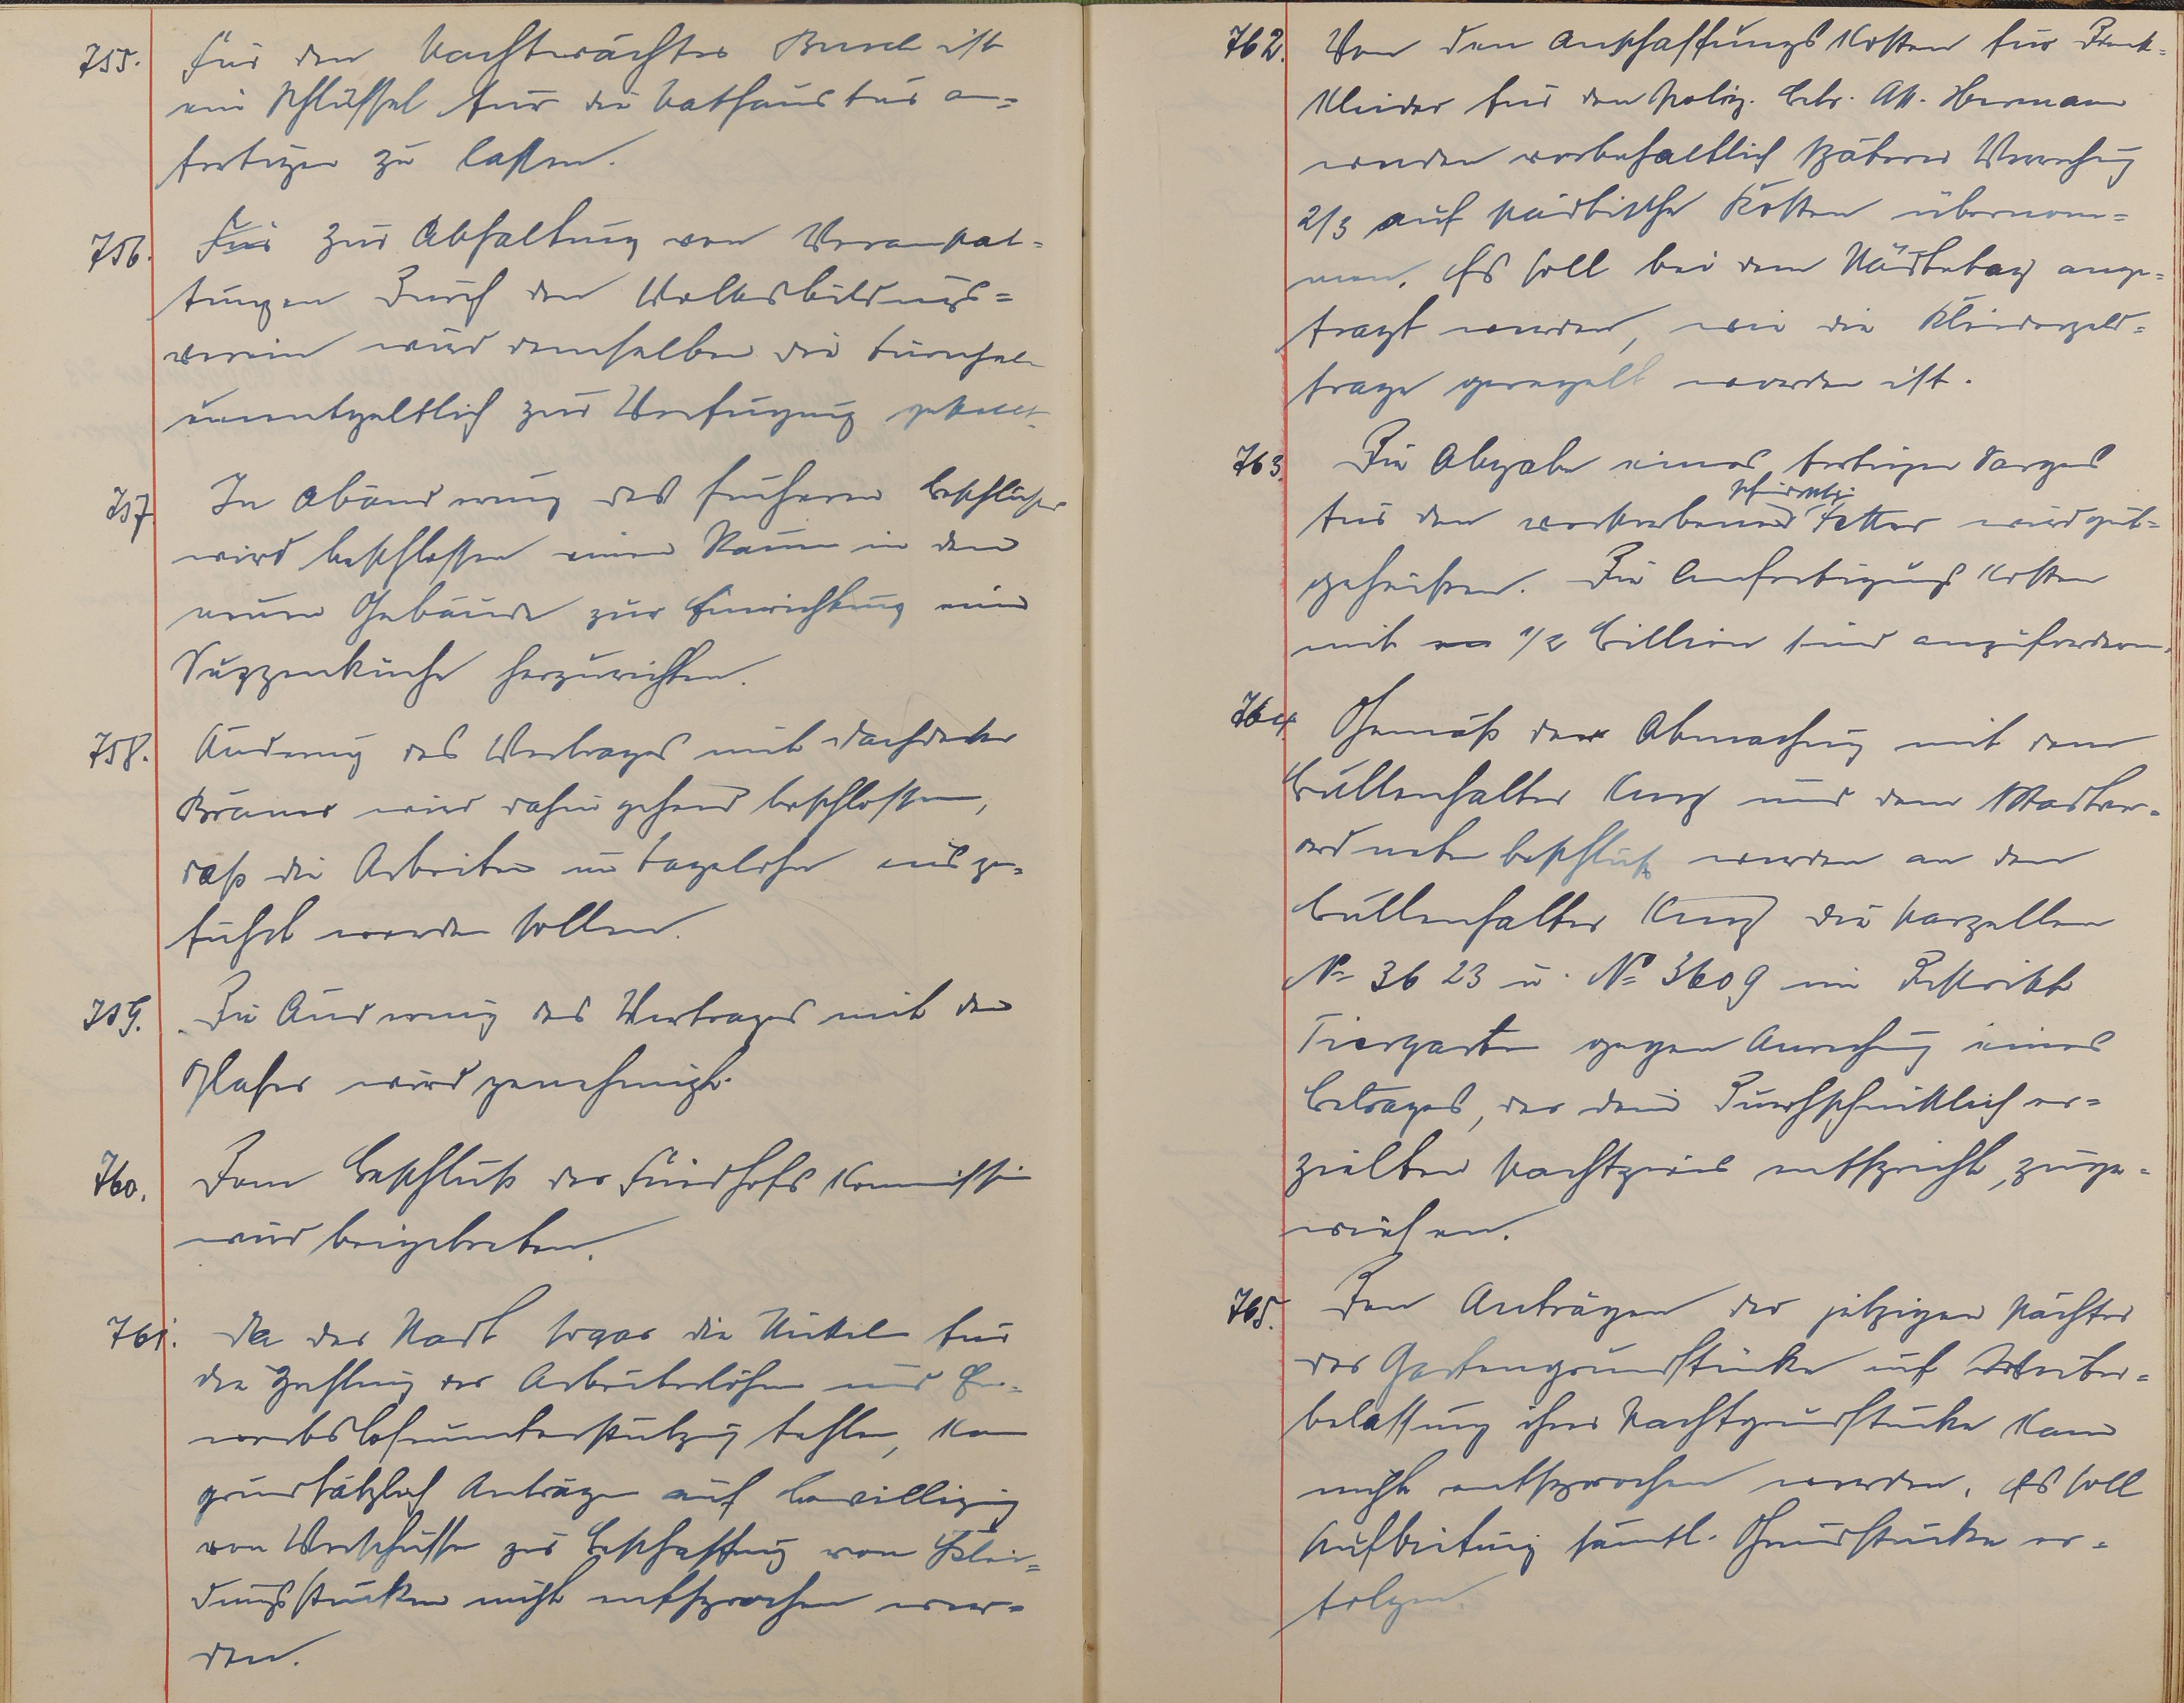 755. Für den Nachtwächter Busch ist
ein Schlüssel für die Rathaustür an=
fertigen zu lassen.
756. Für Zur Abhaltung von Veranstal=
tungen durch den Volksbildungs=
verein wird demselben die Turnhalle
unentgeltlich zur Verfügung gestellt.
757. In Abänderung des früheren Beschlusses
wird beschlossen einen Raum in dem
neuen Gebäude zur Einrichtung einer
Suppenküche herzurichten.
758. Änderung des Vertrages mit Dachdecker
wird dahin gehend beschlossen,
daß die Arbeiten im Tagelohn ausge=
führt werden sollen.
759. Die Änderung des Vertrages mit der
wird genehmigt.
760. Dem Beschluß der Friedhofs Kommission
wird beigetreten.
761. Da der Stadt sogar die Mittel für
die Zahlung der Arbeiterlöhne und Er=
werbslosenunterstützung fehlen, kann
grundsätzlich Anträgen auf Bewilligung
von Vorschüssen zur Beschaffung von Klei=
dungsstücken nicht entsprochen wer=
den.
762. Von den Anschaffungs Kosten für Dienst=
kleider für den Poliz. Hermann
werden vorbehaltlich späterer Verrechng
2/3 auf städtische Kosten übernom=
men. Es soll bei dem Städtetag ange=
fragt werden, wie die Kleidergeld=
frage geregelt worden ist.
763. Die Abgabe eines fertigen Sarges
für den verstorbenen Vetter wird gut=
geheißen. Die Anfertigungs Kosten
mit 1/2 Billion sind anzufordern.
764. Gemäß der Abmachung mit dem
Bullenhalter Kurz und dem Stadtver=
ordneten beschluß werden an den
Bullenhalter Kurz die Parzellen
No 3623 u. No 3609 im Distrikt
Tiergarten gegen Anrechng eines
Betrages, der dem durchschnittlich er=
zielten Pachtpreis entspricht, zuge=
wiesen.
765. Den Anträgen der jetzigen Pächter
der Gartengrundstücke auf Weiter=
belassung ihrer Pachtgrundstücke kann
nicht entsprochen werden. Es soll
Aufbietung sämtl. Grundstücke er=
folgen.